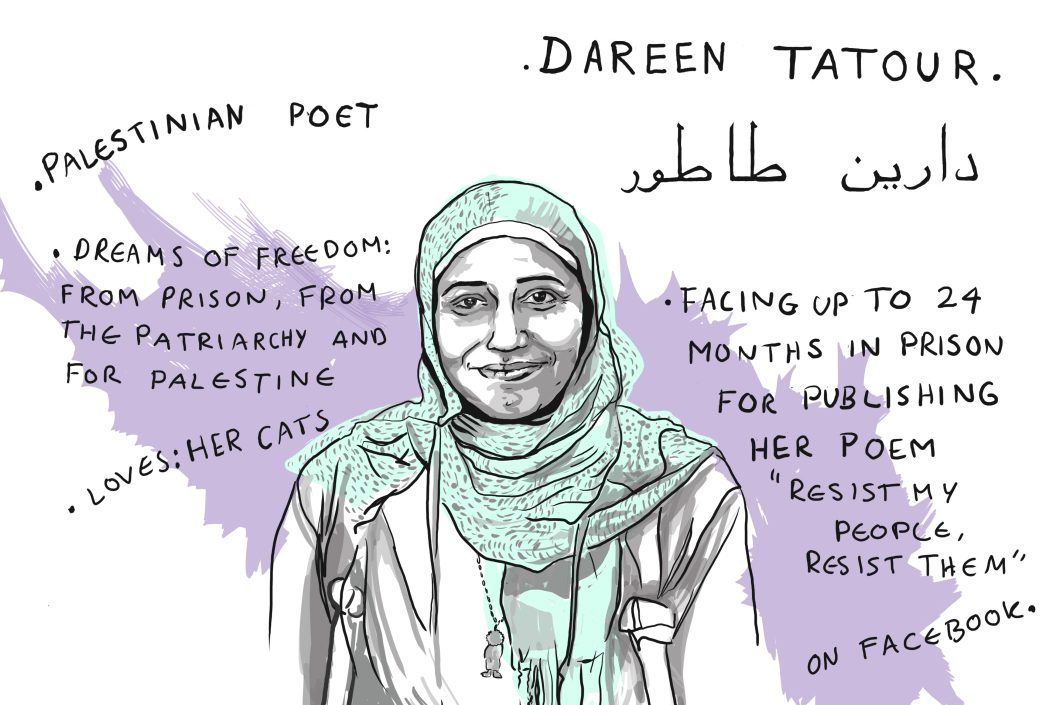 .DAREEN TATOUR.
دارين طاطور
.PALESTINIAN POET
. DREAMS OF FREEDOM:
FROM PRISON, FROM
THE PATRIARCHY AND
FOR PALESTINE
. LOVES: HER CATS
. FACING UP TO 24
MONTHS IN PRISON
FOR PUBLISHING
HER POEM
"RESIST MY
PEOPLE,
RESIST THEM"
ON FACEBOOK.